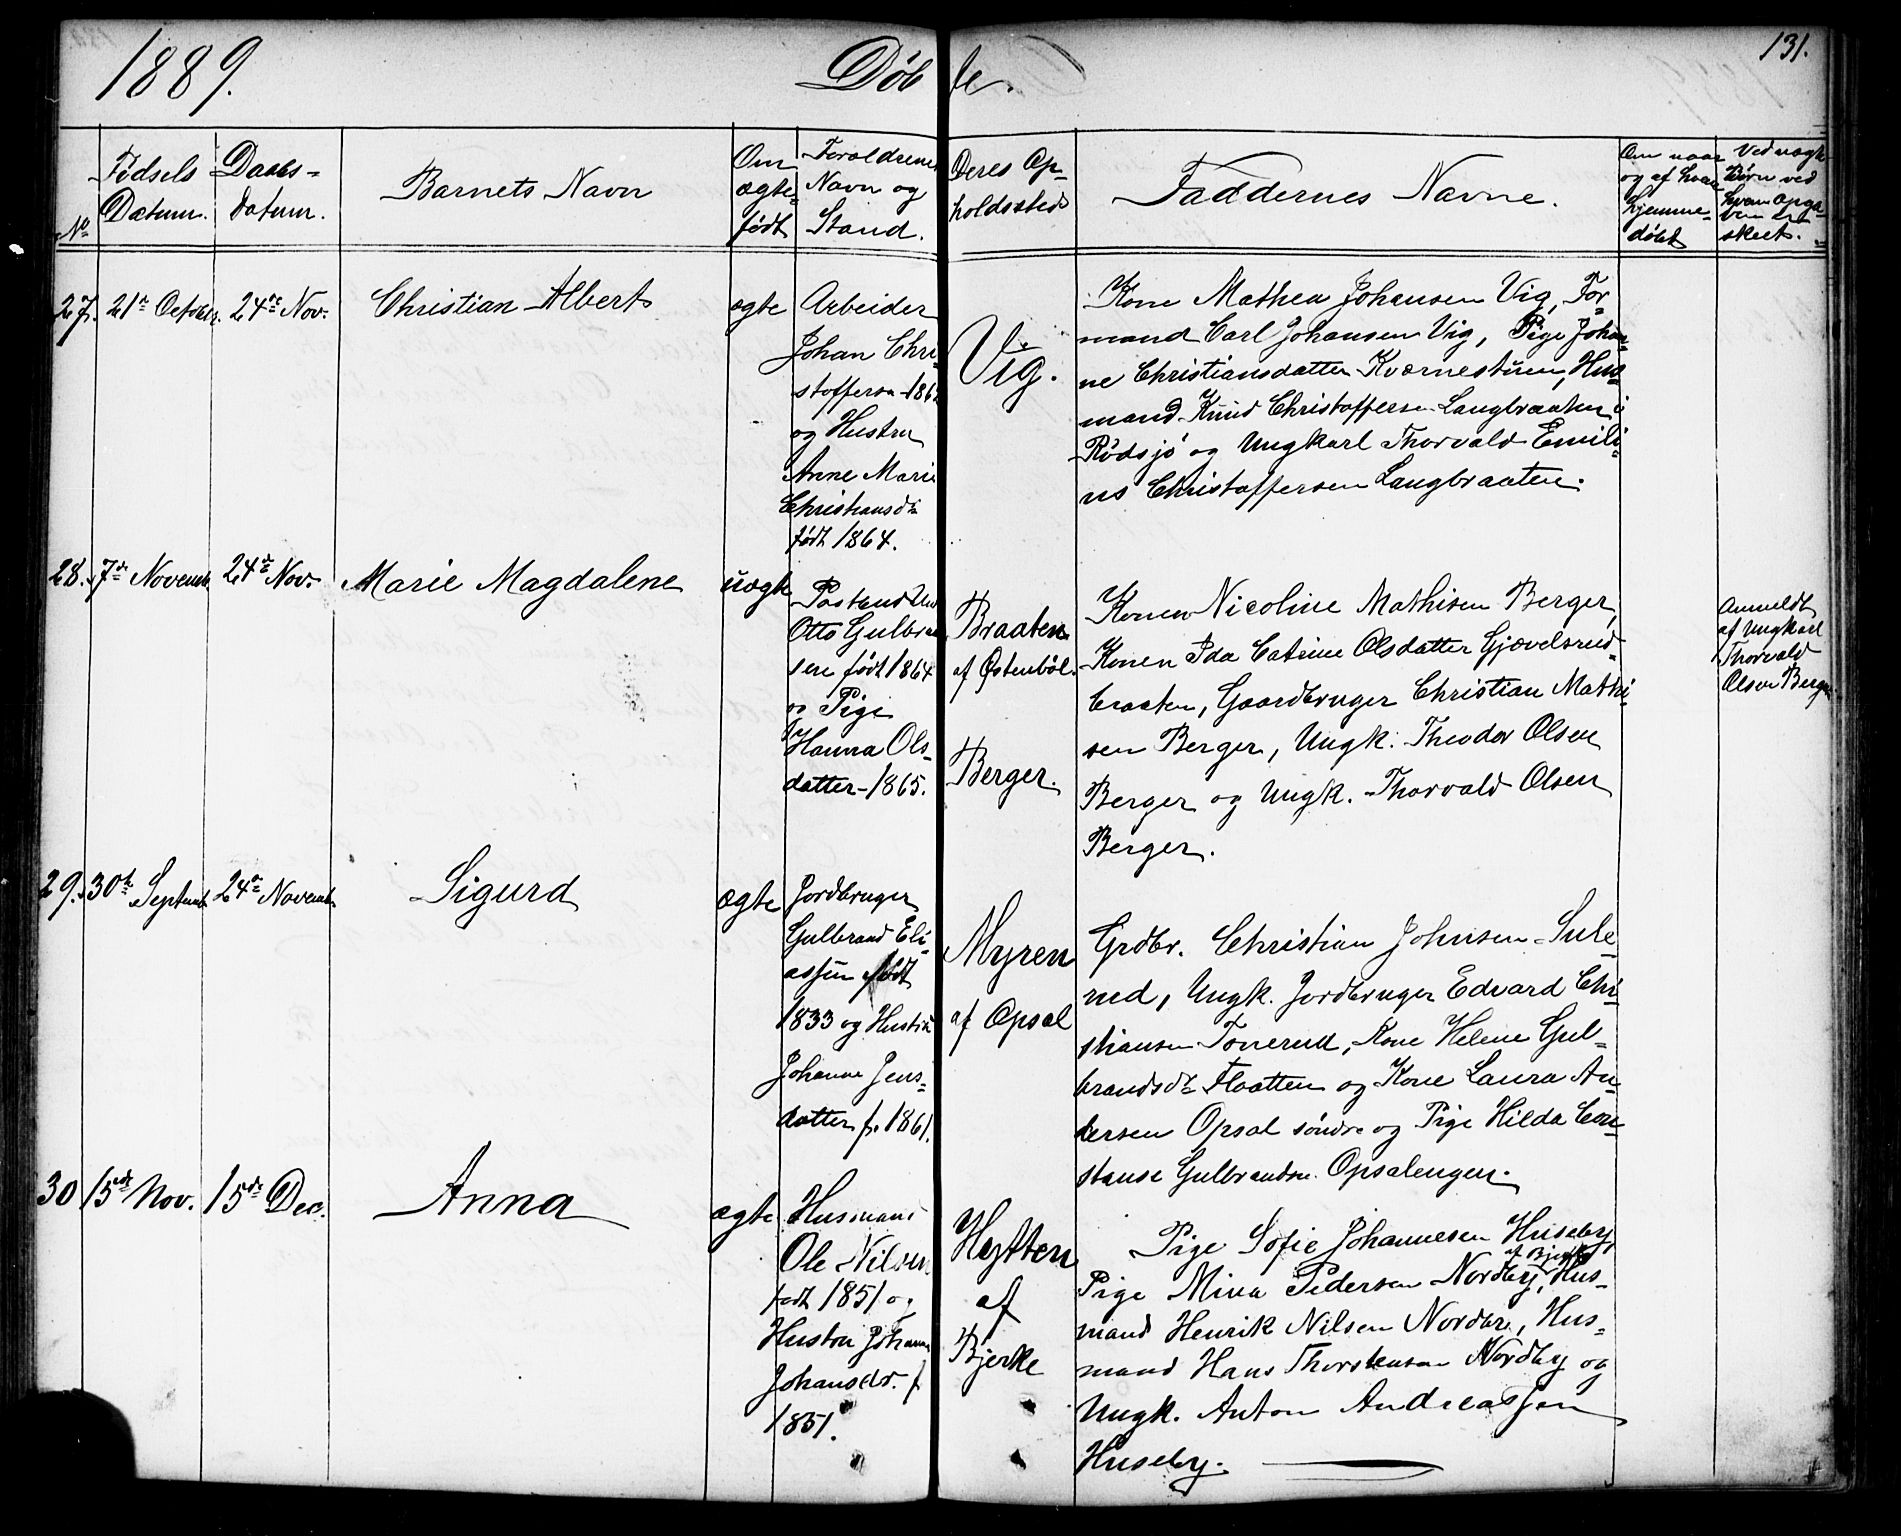 1889. Döbte. 131.
No
Fødsels Datum.
Daabs-datum.
Barnets Navn
Om ægte født
Forældrenes Navn og Stand.
Deres Op-holdssted
Faddernes Navne.
Om naar og af hvem hjemme-døbt
Ved uægte Börn ved hvem Opga-ven er skeet.
27. 21de October. 24de Nov. Christian Albert ægte
Arbeider
Johan Chri-
stoffersen 186
og Hustru
Anne Marie
Christiansdtr
født 1864.
Vig.
Kone Mathea Johansen Vig, For-
mand Carl Johansen Vig, Pige Johan-
ne Christiansdatter Kværnestuen, Hus-
mand Knud Christoffersen Langbraaten i
Rödsjö og Ungkarl Thorvald Emili-
us Christoffersen Langbraaten.
28. 7de Novemb. 24de Nov. Marie Magdalene uægte
Otto Gulbrand-
sen født 1864
og Pige
Hanna Ols-
datter - 1865.
Braaten
af Østenböl.
Berger.
Konen Nicoline Mathisen Berger,
Konen Ida Catrine Olsdatter Gjævelsrud-
braaten, Gaardbruger Christian Mathi-
sen Berger, Ungk. Theodor Olsen
Berger og Ungk. Thorvald Olsen
Berger.
Anmeldt
af Ungkarl
Thorvald
Olsen Berger
29. 30te Septemb. 24de Novemb. Sigurd ægte
Jordbruger
Gulbrand Eli-
assen født
1833 og Hustru
Johanne Jens-
datter f. 1861.
Myren
af Opsal
Grdbr. Christian Johnsen Sule-
rud, Ungk. Jordbruger Edvard Chri-
stiansen Tonerud, Kone Helene Gul-
brandsdtr Flaatten og Kone Laura An-
dersen Opsal söndre og Pige Hilda Con-
stanse Gulbrandsen Opsalengen.
30 15de Nov. 15de Dec. Anna ægte
Husmand
Ole Nilsen
født 1851 og
Hustru Johanne
Johansdr. f.
1851.
Hytten
af
Bjerke
Pige Sofie Johannesen Huseby,
Pige Mina Pedersen Nordby af Bjerke, Hus-
mand Henrik Nilsen Nordbr., Hus-
mand Hans Thorstensen Nordby og
Ungk. Anton Andreassen
Huseby.